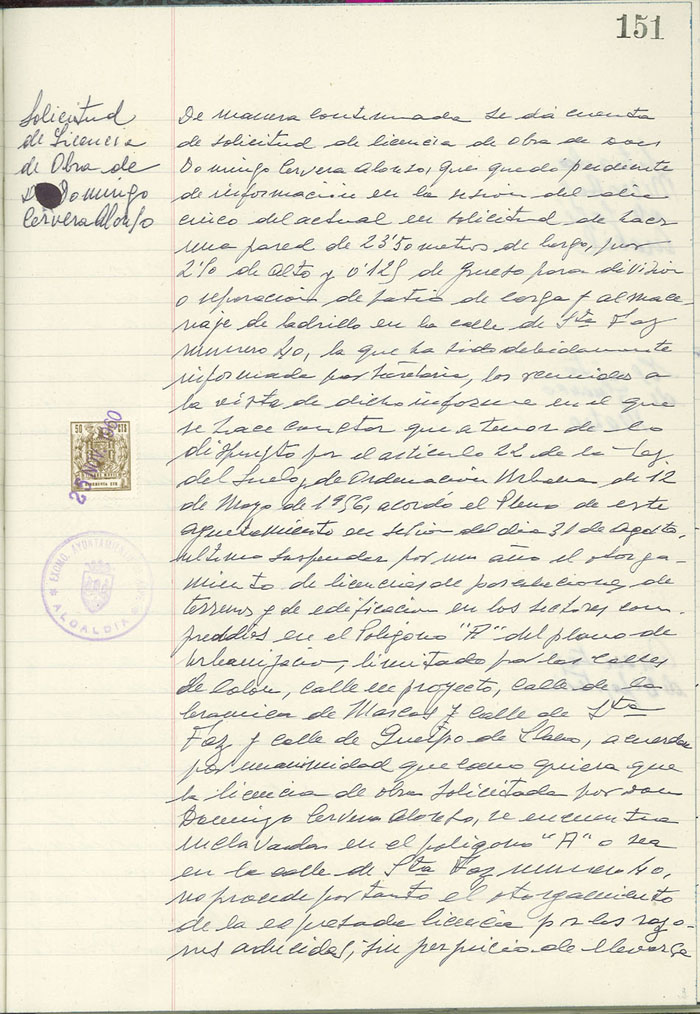 151
Solicitud
de Licencia
de Obra de
Domingo
Cervera Alonso
De manera continuada se da cuenta
de solicitud de licencia de obra de Don
Domingo Cervera Alonso, que quedo pendiente
de información en la sesion del dia
cinco del actual en solicitud de hacer
una pared de 23'50 metros de largo, por
2'10 de alto y 0'125 de grueso para division
o separacion de patio de carga y almace-
naje de ladrillo en la calle de Sta Faz
numero 40, la que ha sido debidamente
informada por Secretaria, los reunidos a
la vista de dicho informe en el que
se hace constar que a tenor de lo
dispuesto por el articulo 22 de la Ley
del Suelo y de Ordenación Urbana de 12
de Mayo de 1956, acordó el Pleno de este
ayuntamiento en sesion del dia 31 de agosto,
ultimo suspender por un año el otorga-
miento de licencias de parcelaciones de
terrenos y de edificacion en los sectores com-
prendidos en el Poligono "A" del plano de
Urbanizacion, limitado por las calles
de Colón, calle en proyecto, calle de la
Ceramica de Marcos y calle de Sta
Faz y calle de de Llano, acuerdan
por unanimidad que como quiera que
la licencia de obra solicitada por Don
Domingo Cervera Alonso, se encuentra
enclavada en el poligono "A" o sea
en la calle de Sta Faz numero 40,
no procede por tanto el otorgamiento
de la expresada licencia por las razo-
nes aducidas, sin perjuicio de llevarse
50 CTS
25 NOV. 1960
EXCMO. AYUNTAMIENTO
ALCALDIA